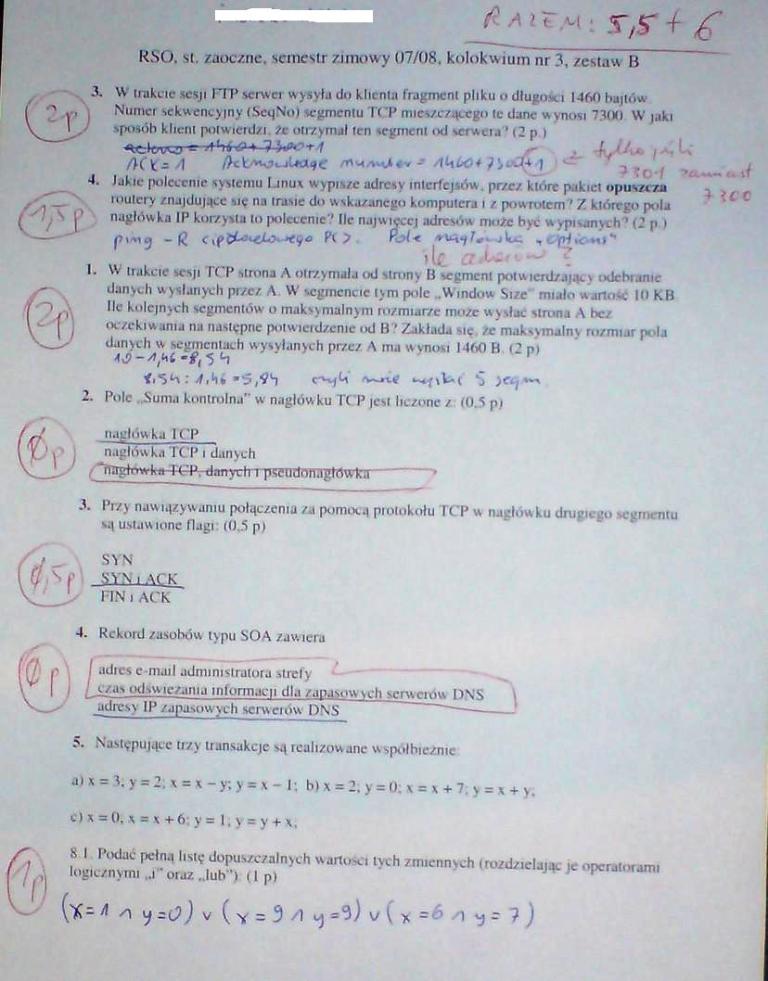 RAZEM: 5,5 + 6
RSO, st. zaoczne, semestr zimowy 07/08, kolokwium nr 3, zestaw B
2p
3. W trakcie sesji FTP serwer wysyła do klienta fragment pliku o długości 1460 bajtów.
Numer sekwencyjny (SeqNo) segmentu TCP mieszczącego te dane wynosi 7300. W jaki
sposób klient potwierdzi, że otrzymał ten segment od serwera? (2 p.)
= 1460+7300+1
ACK=1 Acknowledge number = 1460+7300+1
tylko jeśli
7301 zamiast
7300
1,5p
4. Jakie polecenie systemu Linux wypisze adresy interfejsów, przez które pakiet opuszcza
routery znajdujące się na trasie do wskazanego komputera i z powrotem? Z którego pola
nagłówka IP korzysta to polecenie? Ile najwięcej adresów może być wypisanych? (2 p.)
ping -R <ip docelowego PC>. Pole nagłówka "options"
ile adresów ?
2p
1. W trakcie sesji TCP strona A otrzymała od strony B segment potwierdzający odebranie
danych wysłanych przez A. W segmencie tym pole „Window Size" miało wartość 10 KB.
Ile kolejnych segmentów o maksymalnym rozmiarze może wysłać strona A bez
oczekiwania na następne potwierdzenie od B? Zakłada się, że maksymalny rozmiar pola
danych w segmentach wysyłanych przez A ma wynosi 1460 B. (2 p)
10-1,46=8,54
8,54:1,46=5,84 czyli może wysłać 5 segm.
2. Pole „Suma kontrolna" w nagłówku TCP jest liczone z: (0,5 p)
0p
nagłówka TCP
nagłówka TCP i danych
nagłówka TCP, danych i pseudonagłówka
3. Przy nawiązywaniu połączenia za pomocą protokołu TCP w nagłówku drugiego segmentu
są ustawione flagi: (0,5 p)
0,5p
SYN
SYN i ACK
FIN i ACK
4. Rekord zasobów typu SOA zawiera
0p
adres e-mail administratora strefy
czas odświeżania informacji dla zapasowych serwerów DNS
adresy IP zapasowych serwerów DNS
5. Następujące trzy transakcje są realizowane współbieżnie:
a) x = 3; y = 2; x = x – y; y = x – 1; b) x = 2; y = 0; x = x + 7; y = x + y;
c) x = 0; x = x + 6; y = 1; y = y + x;
1p
8.1. Podać pełną listę dopuszczalnych wartości tych zmiennych (rozdzielając je operatorami
logicznymi „i" oraz „lub"): (1 p)
(x=1 ∧ y=0) ∨ (x=9 ∧ y=9) ∨ (x=6 ∧ y=7)